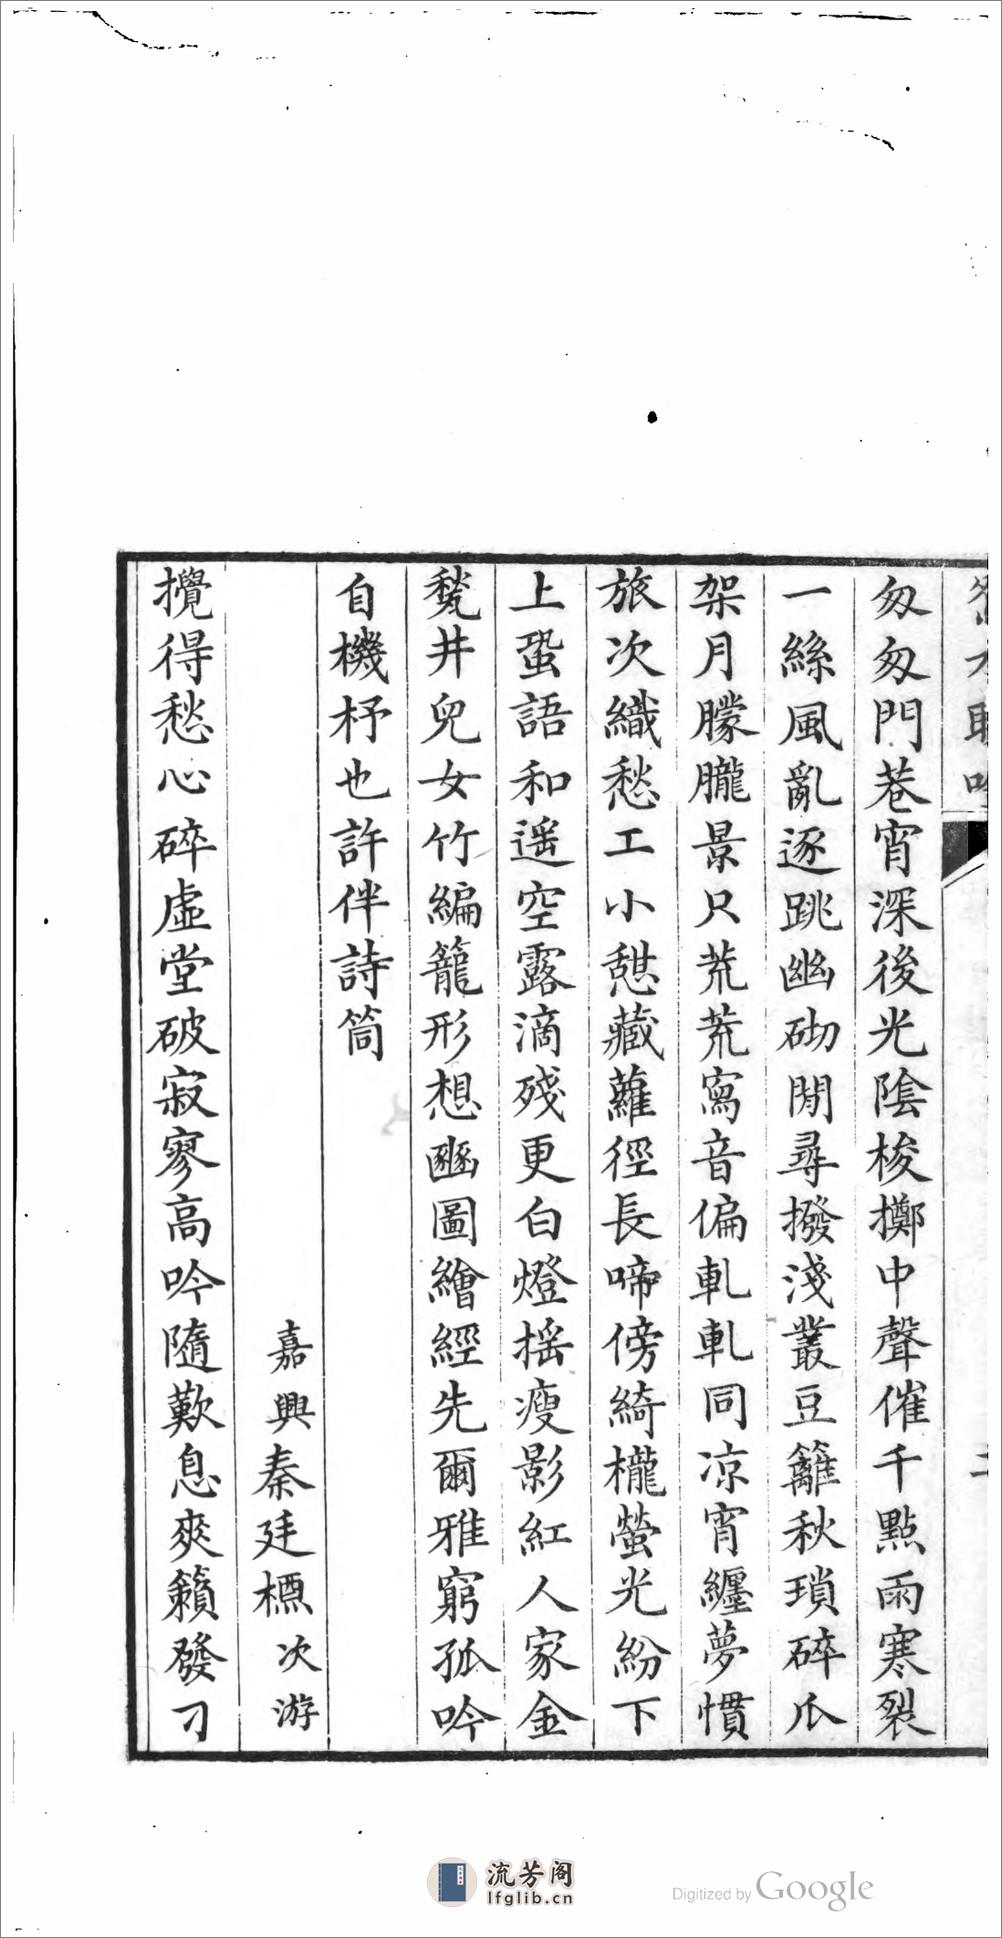 匆匆門巷宵深後光陰梭擲中聲催千點雨寒裂
一絲風亂逐跳幽砌閒尋撥淺叢豆籬秋瑣碎瓜
架月朦朧景只荒荒寫音偏軋軋同凉宵纏夢慣
旅次織愁工小憇藏蘿徑長啼傍綺櫳螢光紛下
上蛩語和遥空露滴殘更白燈摇瘦影紅人家金
甃井兒女竹編籠形想豳圖繪經先爾雅窮孤吟
自機杼也許伴詩筒
嘉興秦廷櫄次游
攪得愁心碎虛堂破寂寥高吟隨歎息爽籟發刁
流芳阁
lfglib.cn
Digitized by Google